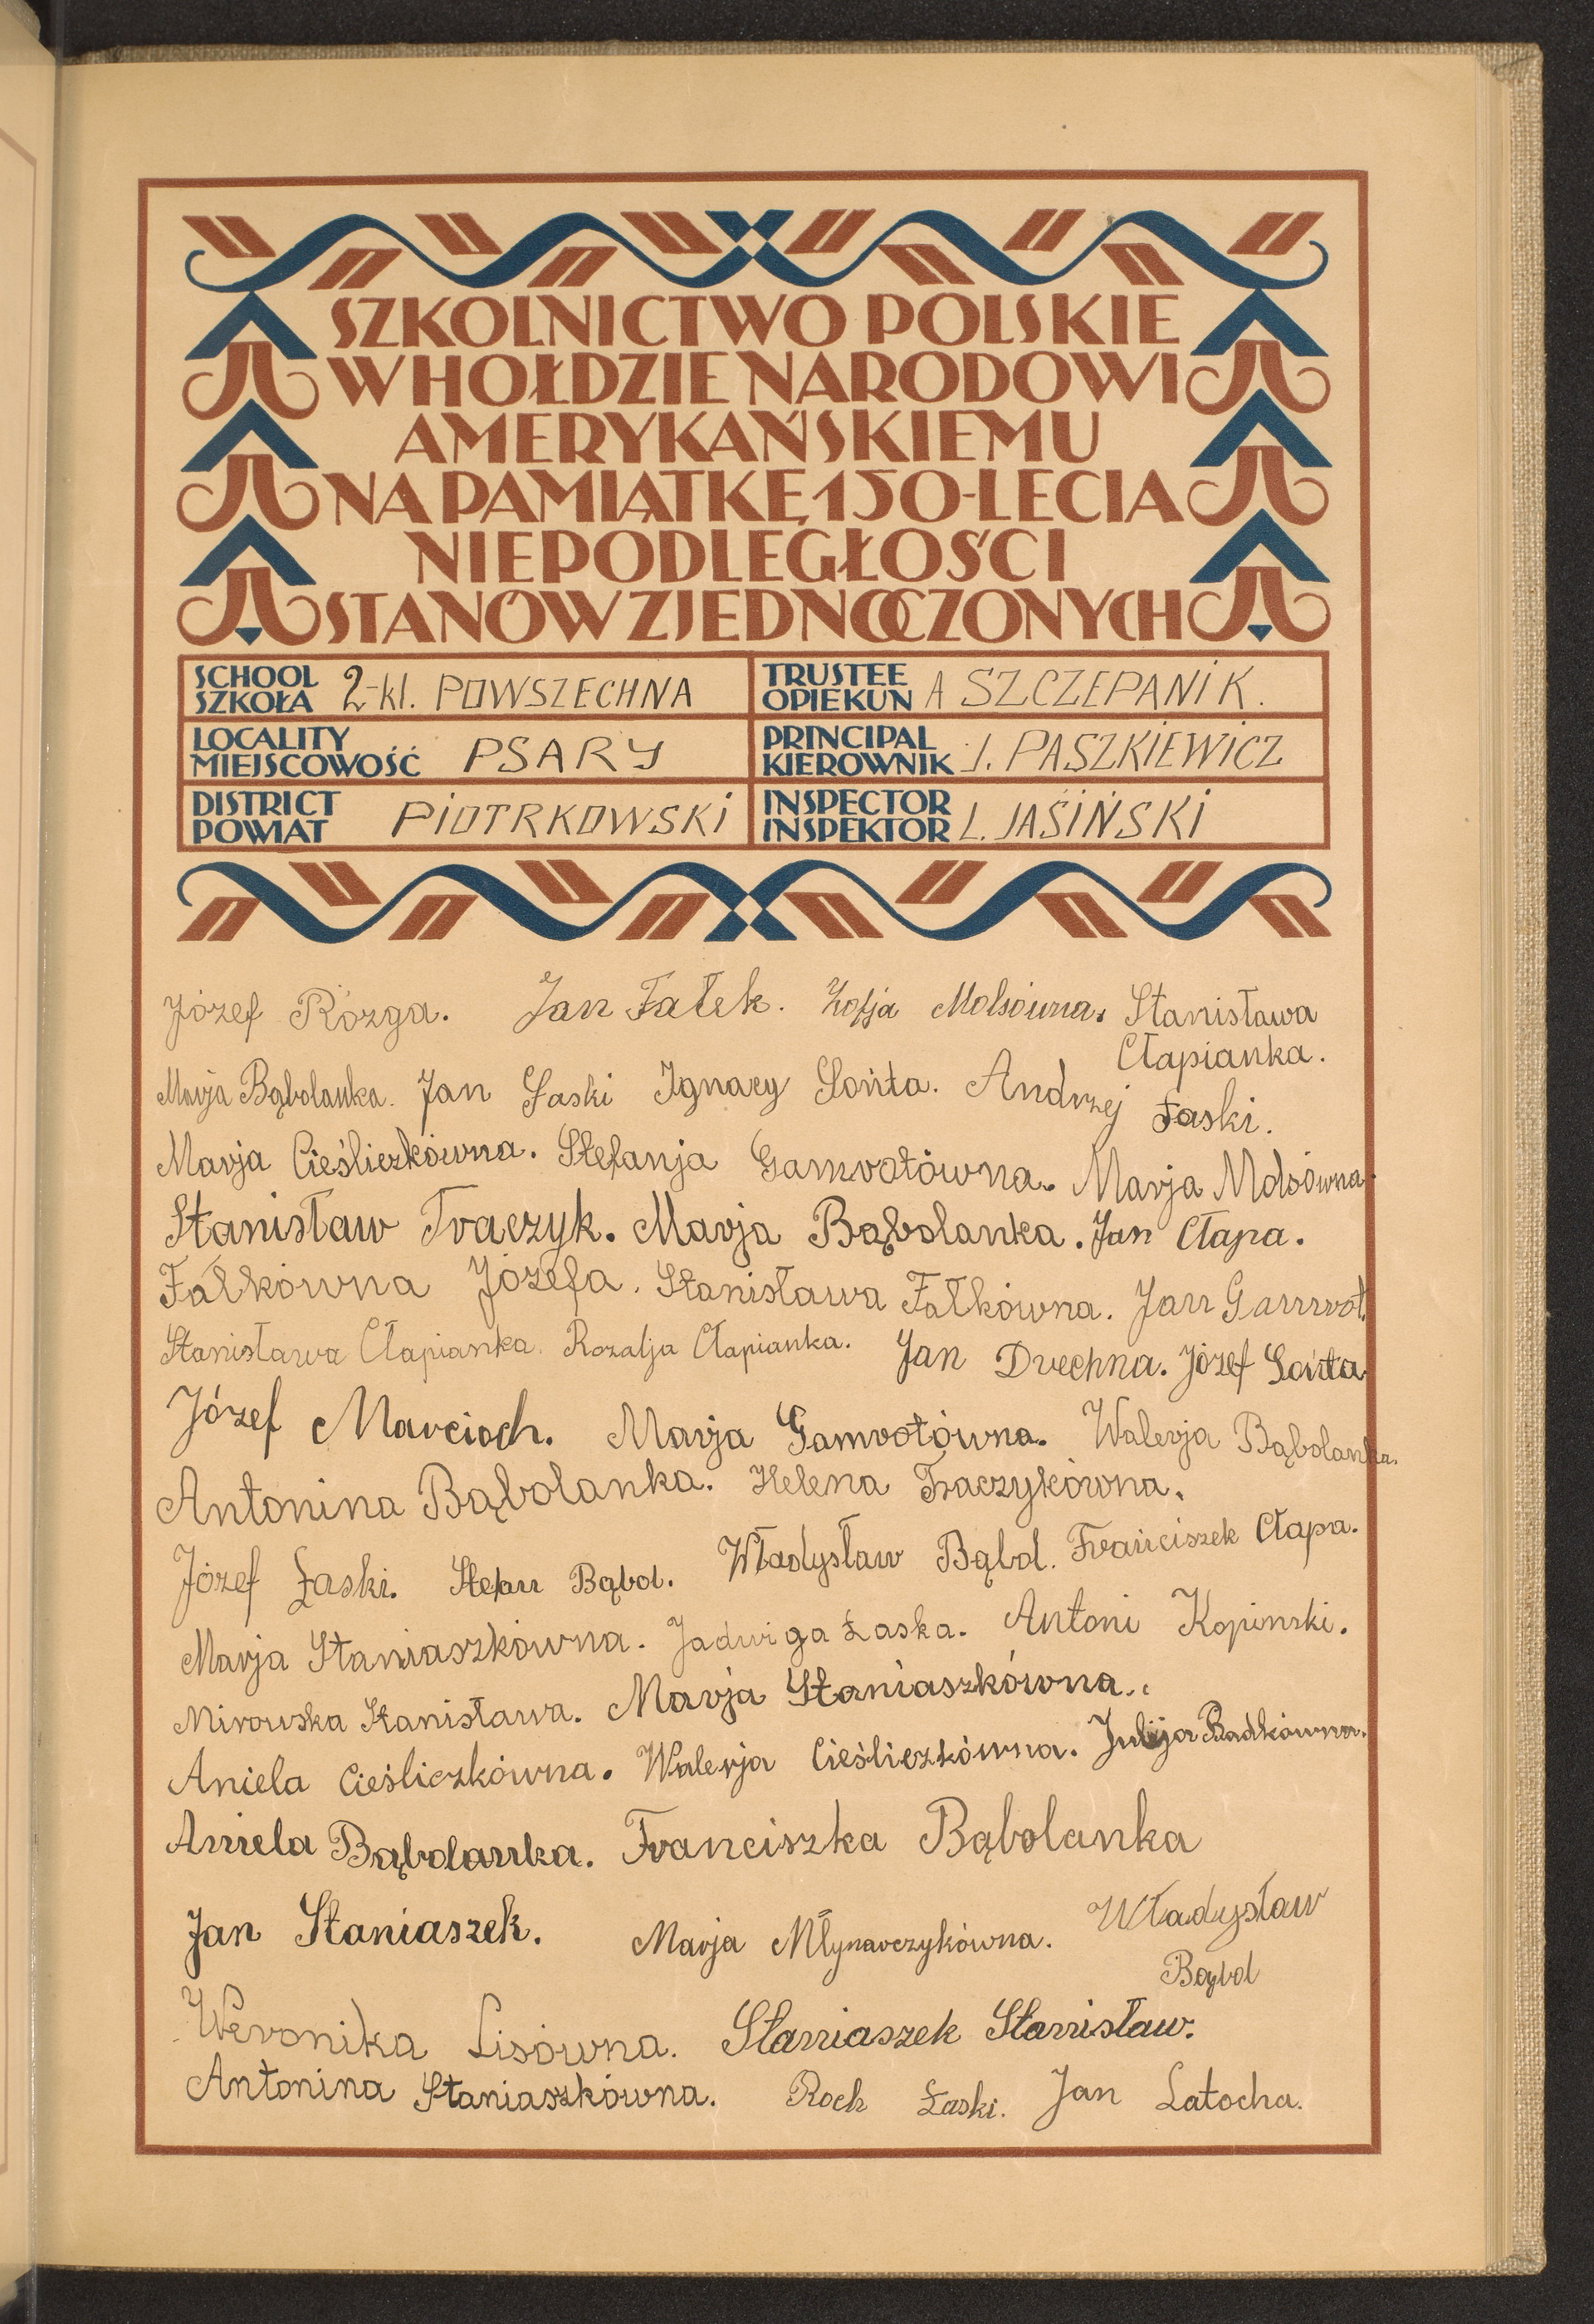 SZKOLNICTWO POLSKIE
W HOŁDZIE NARODOWI
AMERYKAŃSKIEMU
NA PAMIĄTKĘ 150-LECIA
NIEPODLEGŁOŚCI
STANÓW ZJEDNOCZONYCH
SCHOOL
SZKOŁA 2-kl. POWSZECHNA
TRUSTEE
OPIEKUN A SZCZEPANIK.
LOCALITY
MIEJSCOWOŚĆ PSARY
PRINCIPAL
KIEROWNIK J. PASZKIEWICZ
DISTRICT
POWIAT PIOTRKOWSKI
INSPECTOR
INSPEKTOR L. JASIŃSKI
Józef Rózga. Jan Fałek. Zofja Molsówna. Stanisława
Cłapianka.
Marja Bąbolanka. Jan Łaski Ignacy Sońta. Andrzej Łaski.
Marja Cieśliczkówna. Stefanja Gamrotówna. Marja Molsówna.
Stanisław Traczyk. Marja Bąbolanka. Jan Cłapa.
Fałkówna Józefa. Stanisława Fałkówna. Jan Gamrot.
Stanisława Cłapianka. Rozalja Cłapianka. Jan Drechna. Józef Sońta
Józef Marcioch. Marja Gamrotówna. Walerja Bąbolanka.
Antonina Bąbolanka. Helena Traczykówna.
Józef Łaski. Stefan Bąbol. Władysław Bąbol. Franciszek Cłapa.
Marja Staniaszkówna. Jadwiga Łaska. Antoni Kopinski.
Mirowska Stanisława. Marja Staniaszkówna.
Aniela Cieśliczkówna. Walerja Cieśliczkówna. Julija Badkówna.
Aniela Bąbolanka. Franciszka Bąbolanka
Jan Staniaszek. Marja Młynarczykówna. Władysław
Bąbol
Weronika Lisówna. Staniaszek Stanisław.
Antonina Staniaszkówna. Roch Łaski. Jan Latocha.